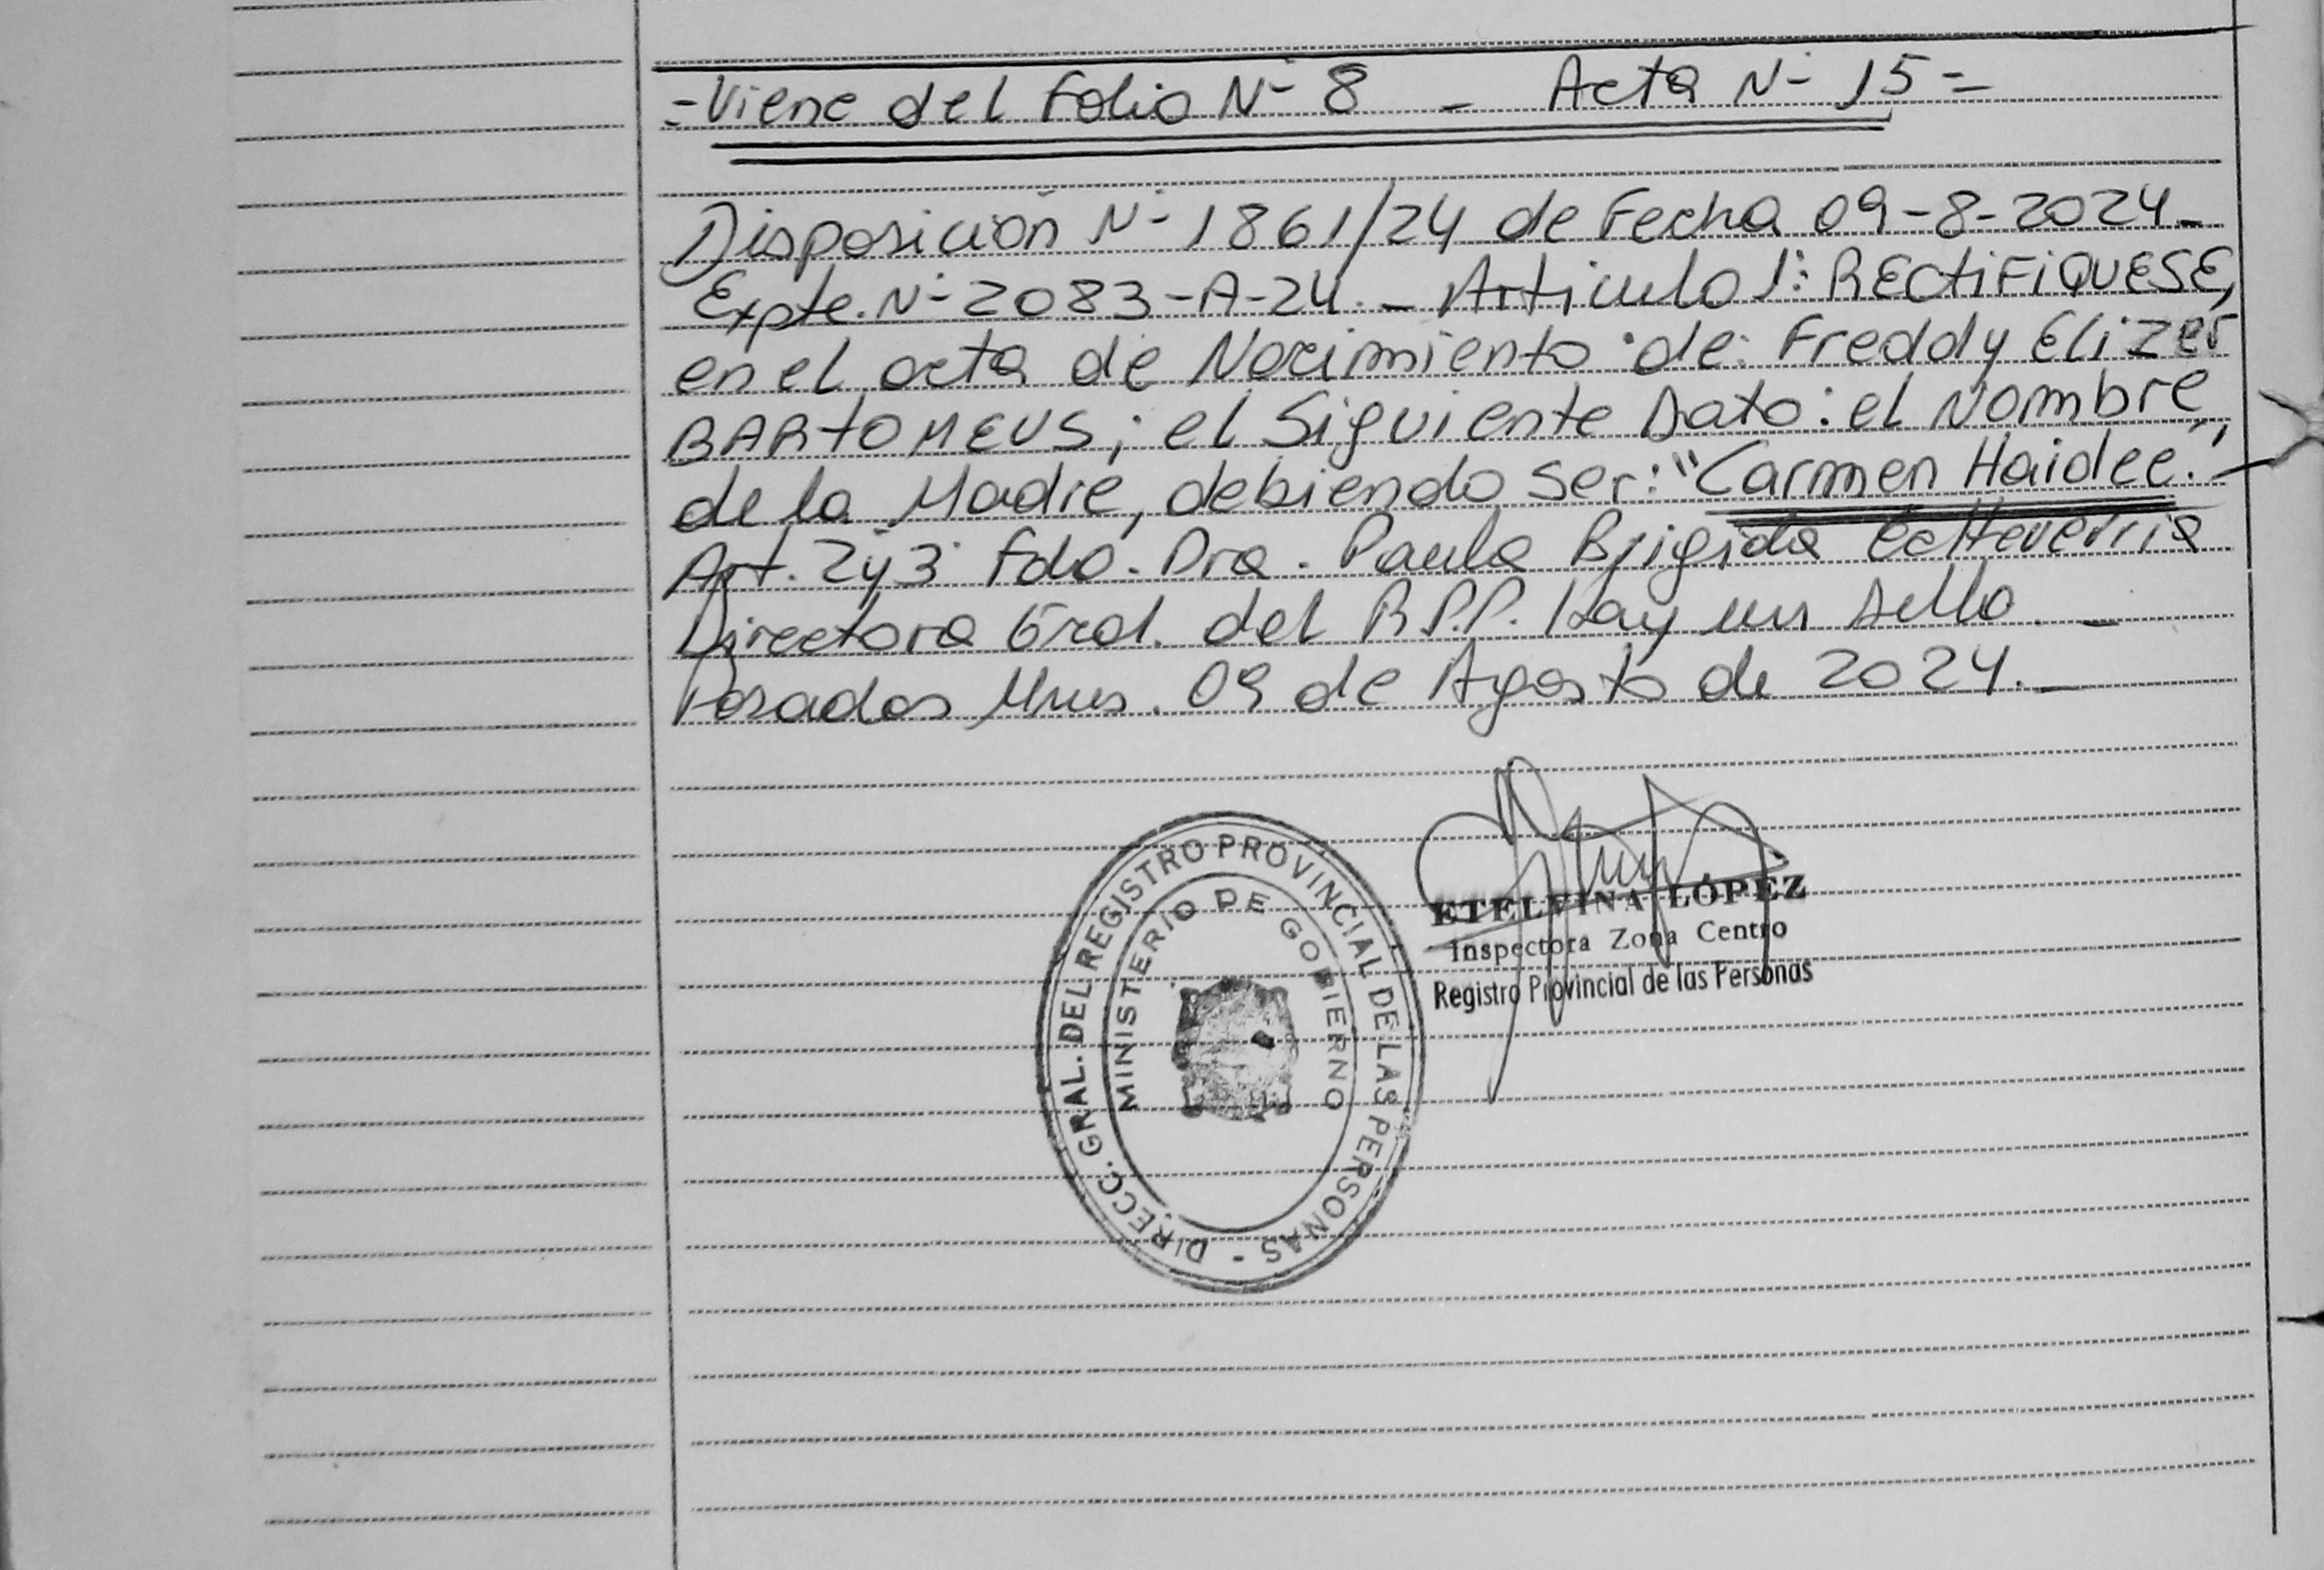 =Viene del Folio Nº 8 - Acta Nº 15=
Disposición Nº 1861/24 de Fecha 09-8-2024-
Expte. Nº 2083-A-24.- Articulo 1º: RECTIFIQUESE,
en el acta de Nacimiento de: Freddy Elizer
BARTOMEUS; el Siguiente Dato: el Nombre
de la Madre, debiendo ser: "Carmen Haidee."-
Art. 2 y 3 Fdo. Dra. Paula Brigida Echeverria
Directora Gral. del R.P.P. Hay un sello. -
Posadas Mnes. 09 de Agosto de 2024.-
DIRECC. GRAL. DEL REGISTRO PROVINCIAL DE LAS PERSONAS -
MINISTERIO DE GOBIERNO
ETELVINA LÓPEZ
Inspectora Zona Centro
Registro Provincial de las Personas